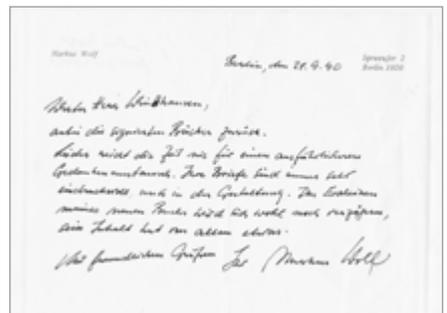 Markus Wolf
Spreeufer 2
Berlin 1020
Berlin, den 21.9.90
Werter Herr Windhausen,
anbei die signierten Bücher zurück.
Leider reicht die Zeit nie für einen ausführlicheren
Gedankenaustausch. Ihre Briefe sind immer sehr
eindrucksvoll, auch in der Gestaltung. Das Erscheinen
meines neuen Buches wird sich wohl noch verzögern,
sein Inhalt hat von allem etwas.
Mit freundlichen Grüßen Ihr Markus Wolf